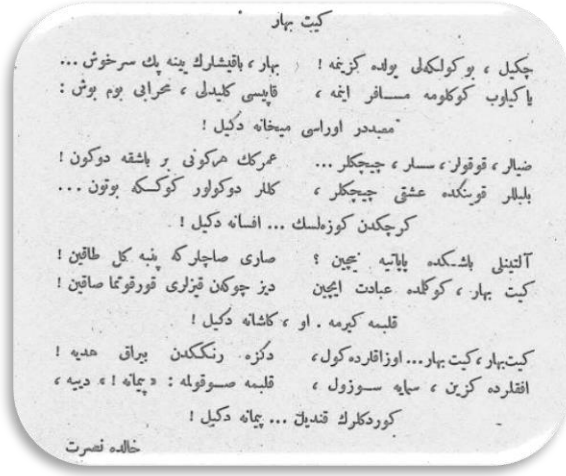 كیت بهار
چكیل ، بو كولكه‌لی یولده كزینمه ! بهار ، باقیشلرك ینه پك سرخوش ...
یا كیلوب كوكلومه مسافر اینمه ، قاپیسی كلیدلی ، محرابی بوم بوش :
معبددر اوراسی میخانه دكیل !
ضیالر ، قوقولر ، سسلر ، چیچكلر ... عمرك هر كونی بر باشقه دوكون !
بلبللر قوینكده عشقی چیچكلر ، كللر دوكولور كوكسكه بوتون ...
كرچكدن كوزه‌لسك ... افسانه دكیل !
آلتینلی باشكده پاپاتیه نیچین ؟ صاری صاچلركه پنبه كل طاقین !
كیت بهار ، كوكلمده عبادت ایچین دیز چوكن قیزلری قورقوتما صاقین !
قلبمه كیرمه . او ، كاشانه دكیل !
كیت بهار ، كیت بهار ... اوزاقلرده كول ، دكزه رنككدن بیراق هدیه !
افقلرده كزین ، سمایه سوزول ، قلبمه صوقولمه : « پیمانه ! » دییه ،
كوردكلرك قندیل ... پیمانه دكیل !
خالده نصرت